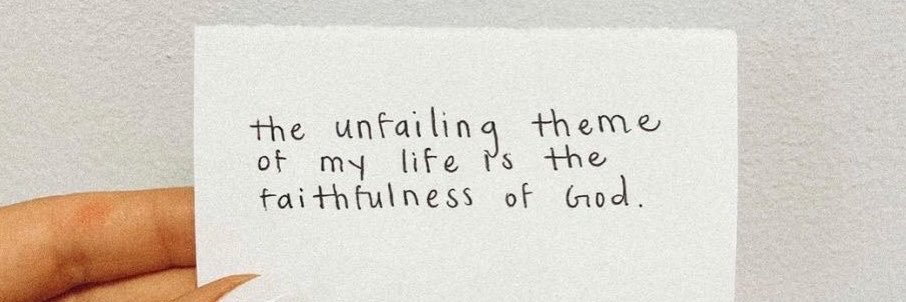 the unfailing theme
of my life is the
faithfulness of God.